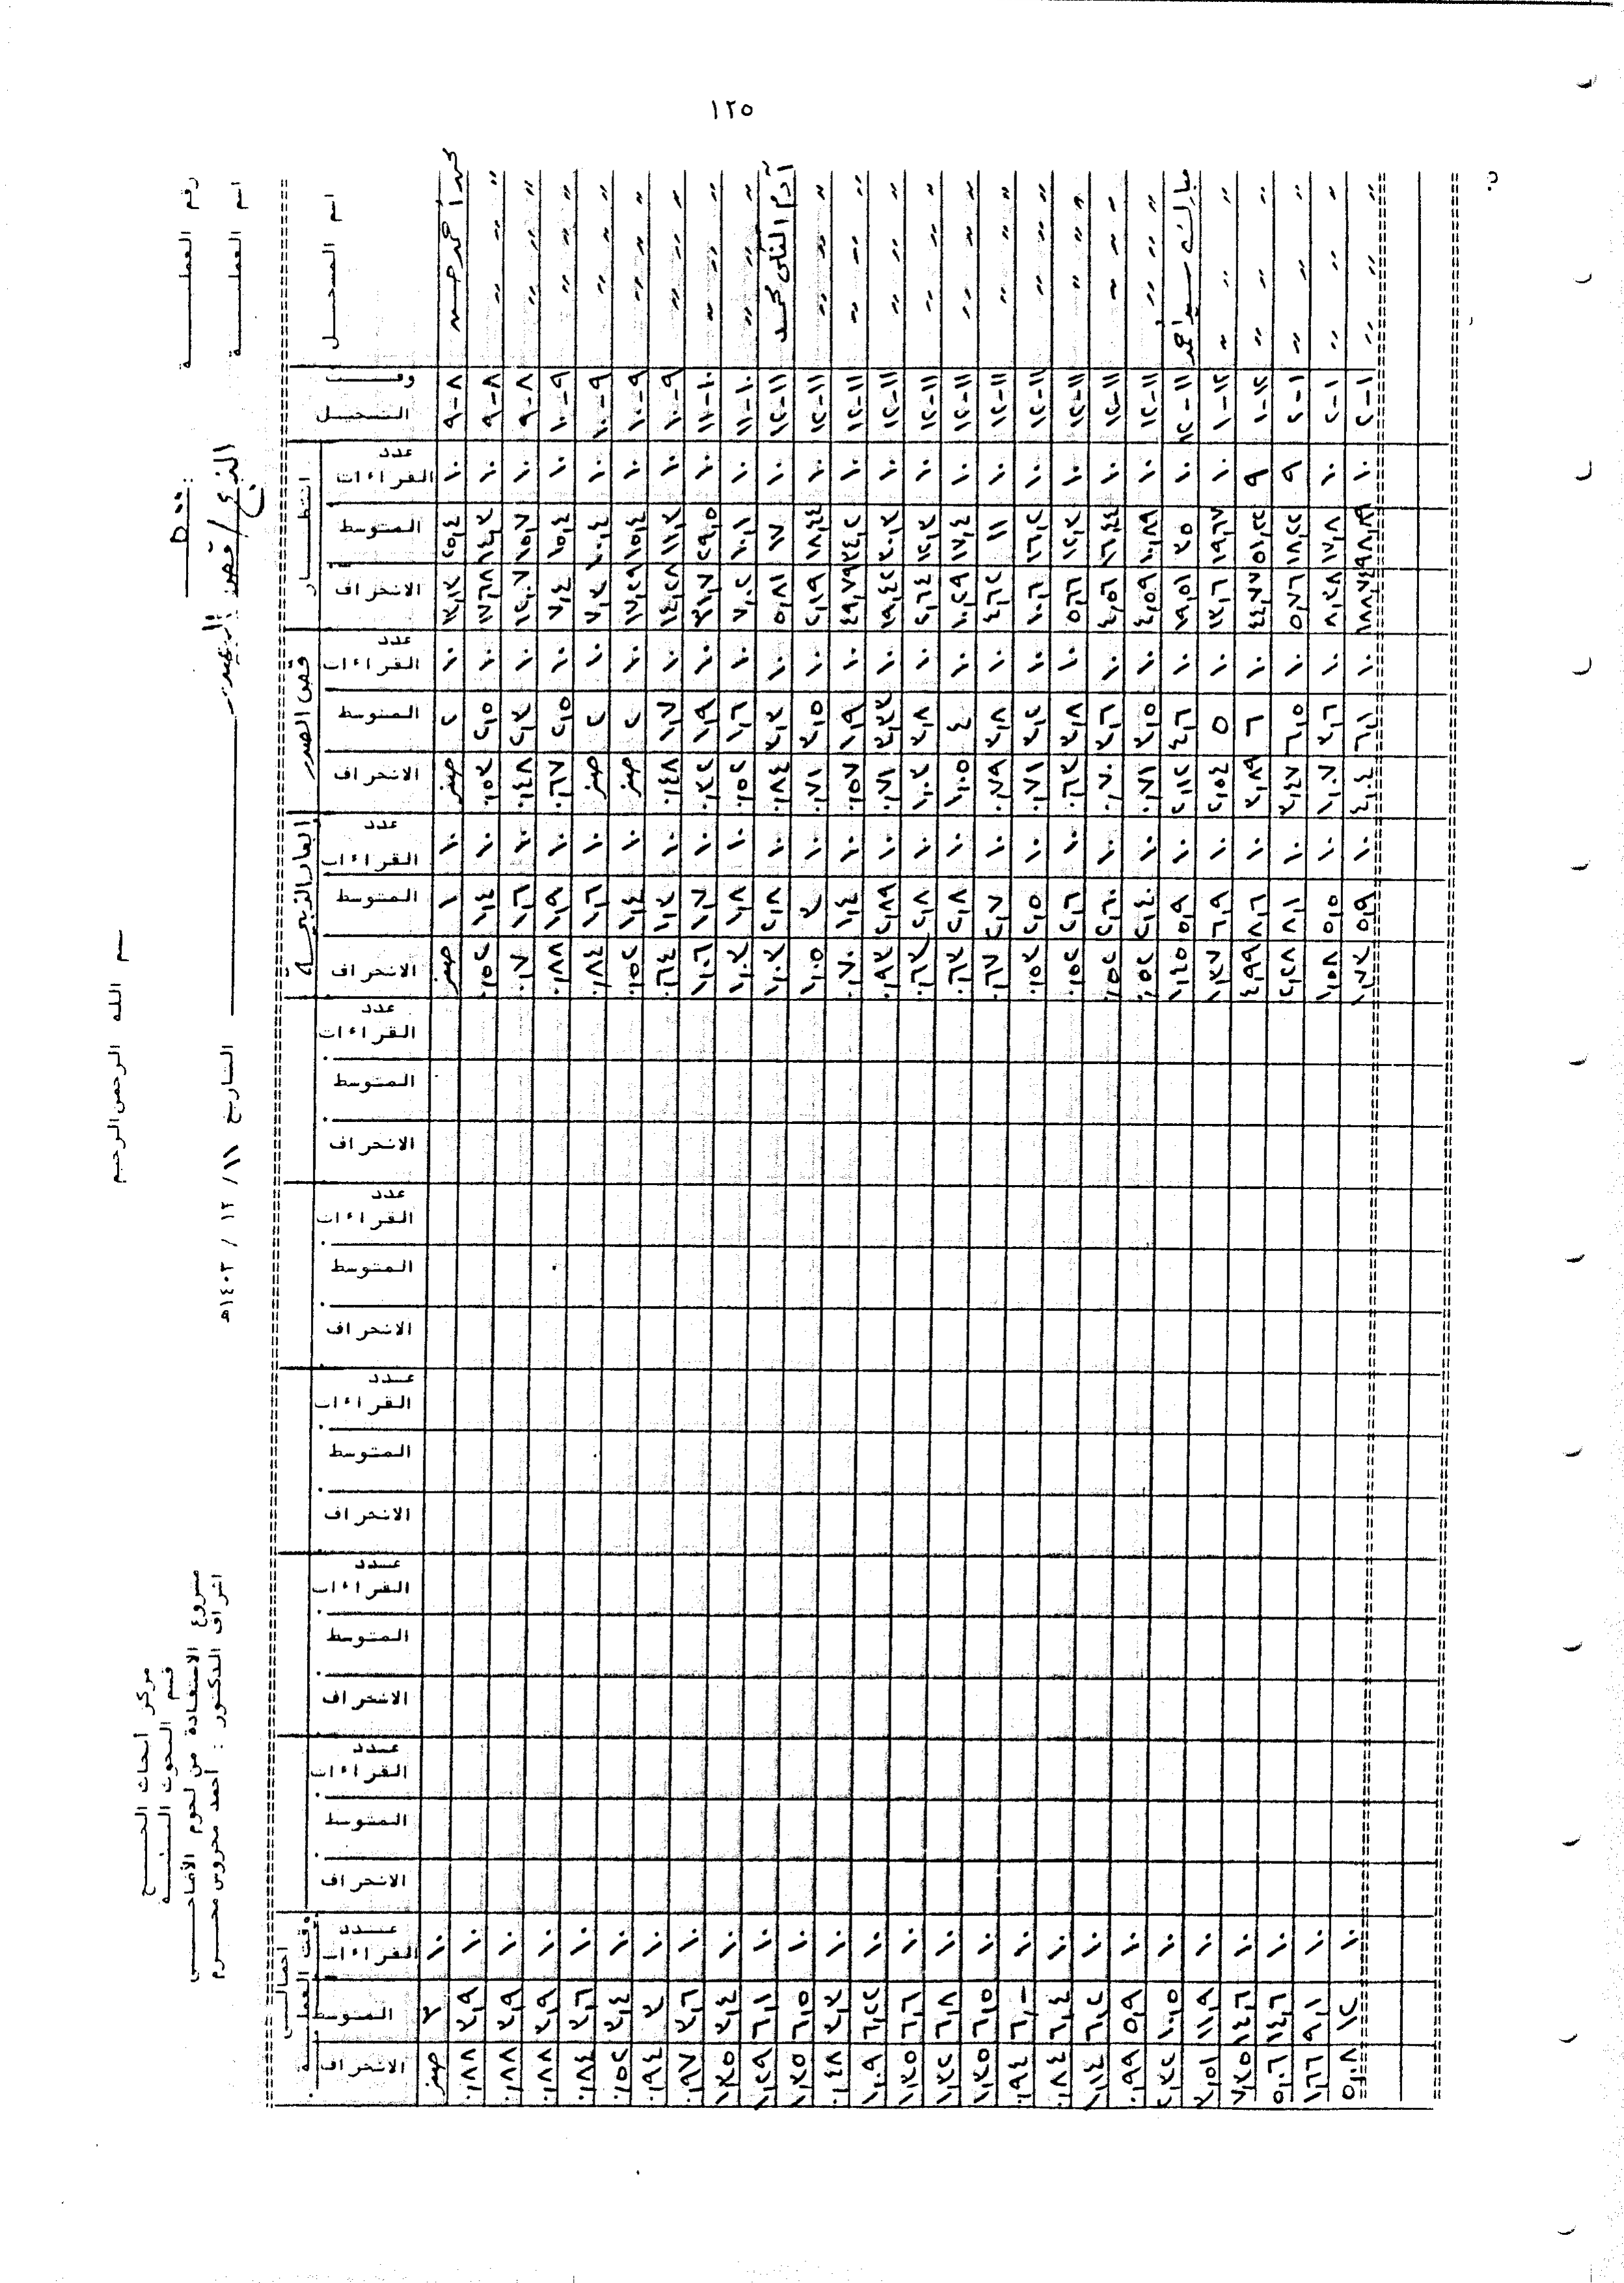 ١٢٥
بسم الله الرحمن الرحيم
مركز أبحاث الحج
قسم البحوث البيئية
مشروع الاستفادة من لحوم الأضاحي
اشراف الدكتور : أحمد محروس محرم
رقم العمليـة : ٥٠٠
اسم العمليـة الذبح / قص الصدر
التاريخ ١١ / ١٢ / ١٤٠٣هـ
اسم المسجل | وقت التسجيل | انتظار | قص الصدر | ابعاد الذبيحة | اجمالي وقت العملية
عدد القراءات | المتوسط | الانحراف | عدد القراءات | المتوسط | الانحراف | عدد القراءات | المتوسط | الانحراف | عدد القراءات | المتوسط | الانحراف | عدد القراءات | المتوسط | الانحراف | عدد القراءات | المتوسط | الانحراف | عدد القراءات | المتوسط | الانحراف | عدد القراءات | المتوسط | الانحراف | عدد القراءات | المتوسط | الانحراف
محمد أحمد حسن | ٨-٩ | ١٠ | ٢٥,٤ | ١٣,١٣ | ١٠ | ٢ | صفر | ١٠ | ١ | صفر | ١٠ | ٣ | صفر
" " " | ٨-٩ | ١٠ | ١٤,٣ | ١٧,٦٨ | ١٠ | ٢,٥ | ٠,٥٣ | ١٠ | ١,٤ | ٠,٥٢ | ١٠ | ٣,٩ | ٠,٨٨
" " " | ٨-٩ | ١٠ | ١٥,٧ | ١٢,٠٧ | ١٠ | ٢,٣ | ٠,٤٨ | ١٠ | ١,٦ | ٠,٧ | ١٠ | ٣,٩ | ٠,٨٨
" " " | ٩-١٠ | ١٠ | ١٥,٤ | ٧,٤ | ١٠ | ٢,٥ | ٠,٦٧ | ١٠ | ١,٩ | ٠,٨٨ | ١٠ | ٣,٩ | ٠,٨٨
" " " | ٩-١٠ | ١٠ | ١٠,٤ | ٧,٣ | ١٠ | ٢ | صفر | ١٠ | ١,٦ | ٠,٨٤ | ١٠ | ٣,٦ | ٠,٨٤
" " " | ٩-١٠ | ١٠ | ١٥,٤ | ١٧,٢٩ | ١٠ | ٢ | صفر | ١٠ | ١,٤ | ٠,٥٢ | ١٠ | ٣,٤ | ٠,٥٢
" " " | ٩-١٠ | ١٠ | ١١,٣ | ١٤,٢٨ | ١٠ | ١,٧ | ٠,٤٨ | ١٠ | ١,٣ | ٠,٦٤ | ١٠ | ٣ | ٠,٩٤
" " " | ١٠-١١ | ١٠ | ٢٩,٥ | ٣١,٧ | ١٠ | ١,٩ | ٠,٣٢ | ١٠ | ١,٧ | ١,٠٦ | ١٠ | ٣,٦ | ٠,٩٧
" " " | ١٠-١١ | ١٠ | ١٠,١ | ٧,٠٢ | ١٠ | ١,٦ | ٠,٥٢ | ١٠ | ١,٨ | ١,٠٣ | ١٠ | ٣,٤ | ١,٣٥
آدم الفكي محمد | ١١-١٢ | ١٠ | ١٧ | ٥,٨١ | ١٠ | ٣,٣ | ٠,٨٤ | ١٠ | ٢,٨ | ١,٠٣ | ١٠ | ٦,١ | ١,٢٩
" " " | ١١-١٢ | ١٠ | ١٨,٤٤ | ٦,١٩ | ١٠ | ٣,٥ | ٠,٧١ | ١٠ | ٣ | ١,٠٥ | ١٠ | ٦,٥ | ١,٣٥
" " " | ١١-١٢ | ١٠ | ٣٤,٢ | ٤٩,٧٩ | ١٠ | ١,٩ | ٠,٥٧ | ١٠ | ١,٤ | ٠,٧٠ | ١٠ | ٣,٣ | ٠,٤٨
" " " | ١١-١٢ | ١٠ | ٣٠,٣ | ١٩,٤٢ | ١٠ | ٣,٣٣ | ٠,٧١ | ١٠ | ٢,٨٩ | ٠,٩٣ | ١٠ | ٦,٢٢ | ١,٠٩
" " " | ١١-١٢ | ١٠ | ١٢,٣ | ٦,٦٤ | ١٠ | ٣,٨ | ١,٠٣ | ١٠ | ٢,٨ | ٠,٦٣ | ١٠ | ٦,٦ | ١,٣٥
" " " | ١١-١٢ | ١٠ | ١٧,٤ | ١٠,٢٩ | ١٠ | ٤ | ١,٠٥ | ١٠ | ٢,٨ | ٠,٦٣ | ١٠ | ٦,٨ | ١,٣٢
" " " | ١١-١٢ | ١٠ | ١١ | ٤,٦٢ | ١٠ | ٣,٨ | ٠,٧٩ | ١٠ | ٢,٧ | ٠,٦٧ | ١٠ | ٦,٥ | ١,٣٥
" " " | ١١-١٢ | ١٠ | ١٦,٢ | ١٠,٦ | ١٠ | ٣,٢ | ٠,٧١ | ١٠ | ٢,٥ | ٠,٥٣ | ١٠ | ٦,٠ | ٠,٩٤
" " " | ١١-١٢ | ١٠ | ١٢,٣ | ٥,٦٦ | ١٠ | ٣,٨ | ٠,٦٣ | ١٠ | ٢,٦ | ٠,٥٢ | ١٠ | ٦,٤ | ٠,٨٤
" " " | ١١-١٢ | ١٠ | ١٦,٤٤ | ٤,٥٦ | ١٠ | ٣,٦ | ٠,٧٠ | ١٠ | ٢,٦٠ | ٠,٥٢ | ١٠ | ٦,٢ | ١,١٤
" " " | ١١-١٢ | ١٠ | ١٠,٨٩ | ٤,٥٩ | ١٠ | ٣,٥ | ٠,٧١ | ١٠ | ٢,٤٠ | ٠,٥٢ | ١٠ | ٥,٩ | ٠,٩٩
مبارك سيد احمد | ١١-١٢ | ١٠ | ٣٥ | ١٩,٥١ | ١٠ | ٤,٦ | ٢,١٢ | ١٠ | ٥,٩ | ١,٤٥ | ١٠ | ١٠,٥ | ٢,٣٢
" " " | ١٢-١ | ١٠ | ١٩,٦٧ | ١٣,٦ | ١٠ | ٥ | ٢,٥٤ | ١٠ | ٦,٩ | ١,٣٧ | ١٠ | ١١,٩ | ٣,٥١
" " " | ١٢-١ | ٩ | ٥١,٢٢ | ٤٤,٧٧ | ١٠ | ٦ | ٣,٨٩ | ١٠ | ٨,٦ | ٤,٩٩ | ١٠ | ١٤,٦ | ٧,٣٥
" " " | ١-٢ | ٩ | ١٨,٢٢ | ٥,٧٦ | ١٠ | ٦,٥ | ٣,٤٧ | ١٠ | ٨,١ | ٢,٢٨ | ١٠ | ١٤,٦ | ٥,٠٦
" " " | ١-٢ | ١٠ | ١٧,٨ | ٨,٣٨ | ١٠ | ٣,٦ | ١,٠٧ | ١٠ | ٥,٥ | ١,٥٨ | ١٠ | ٩,١ | ١,٦٦
" " " | ١-٢ | ١٠ | ٩٨,٨٩ | ١٨٨,٧٤ | ١٠ | ٦,١ | ٤,٠٤ | ١٠ | ٥,٩ | ١,٧٣ | ١٠ | ١٢ | ٥,٠٨